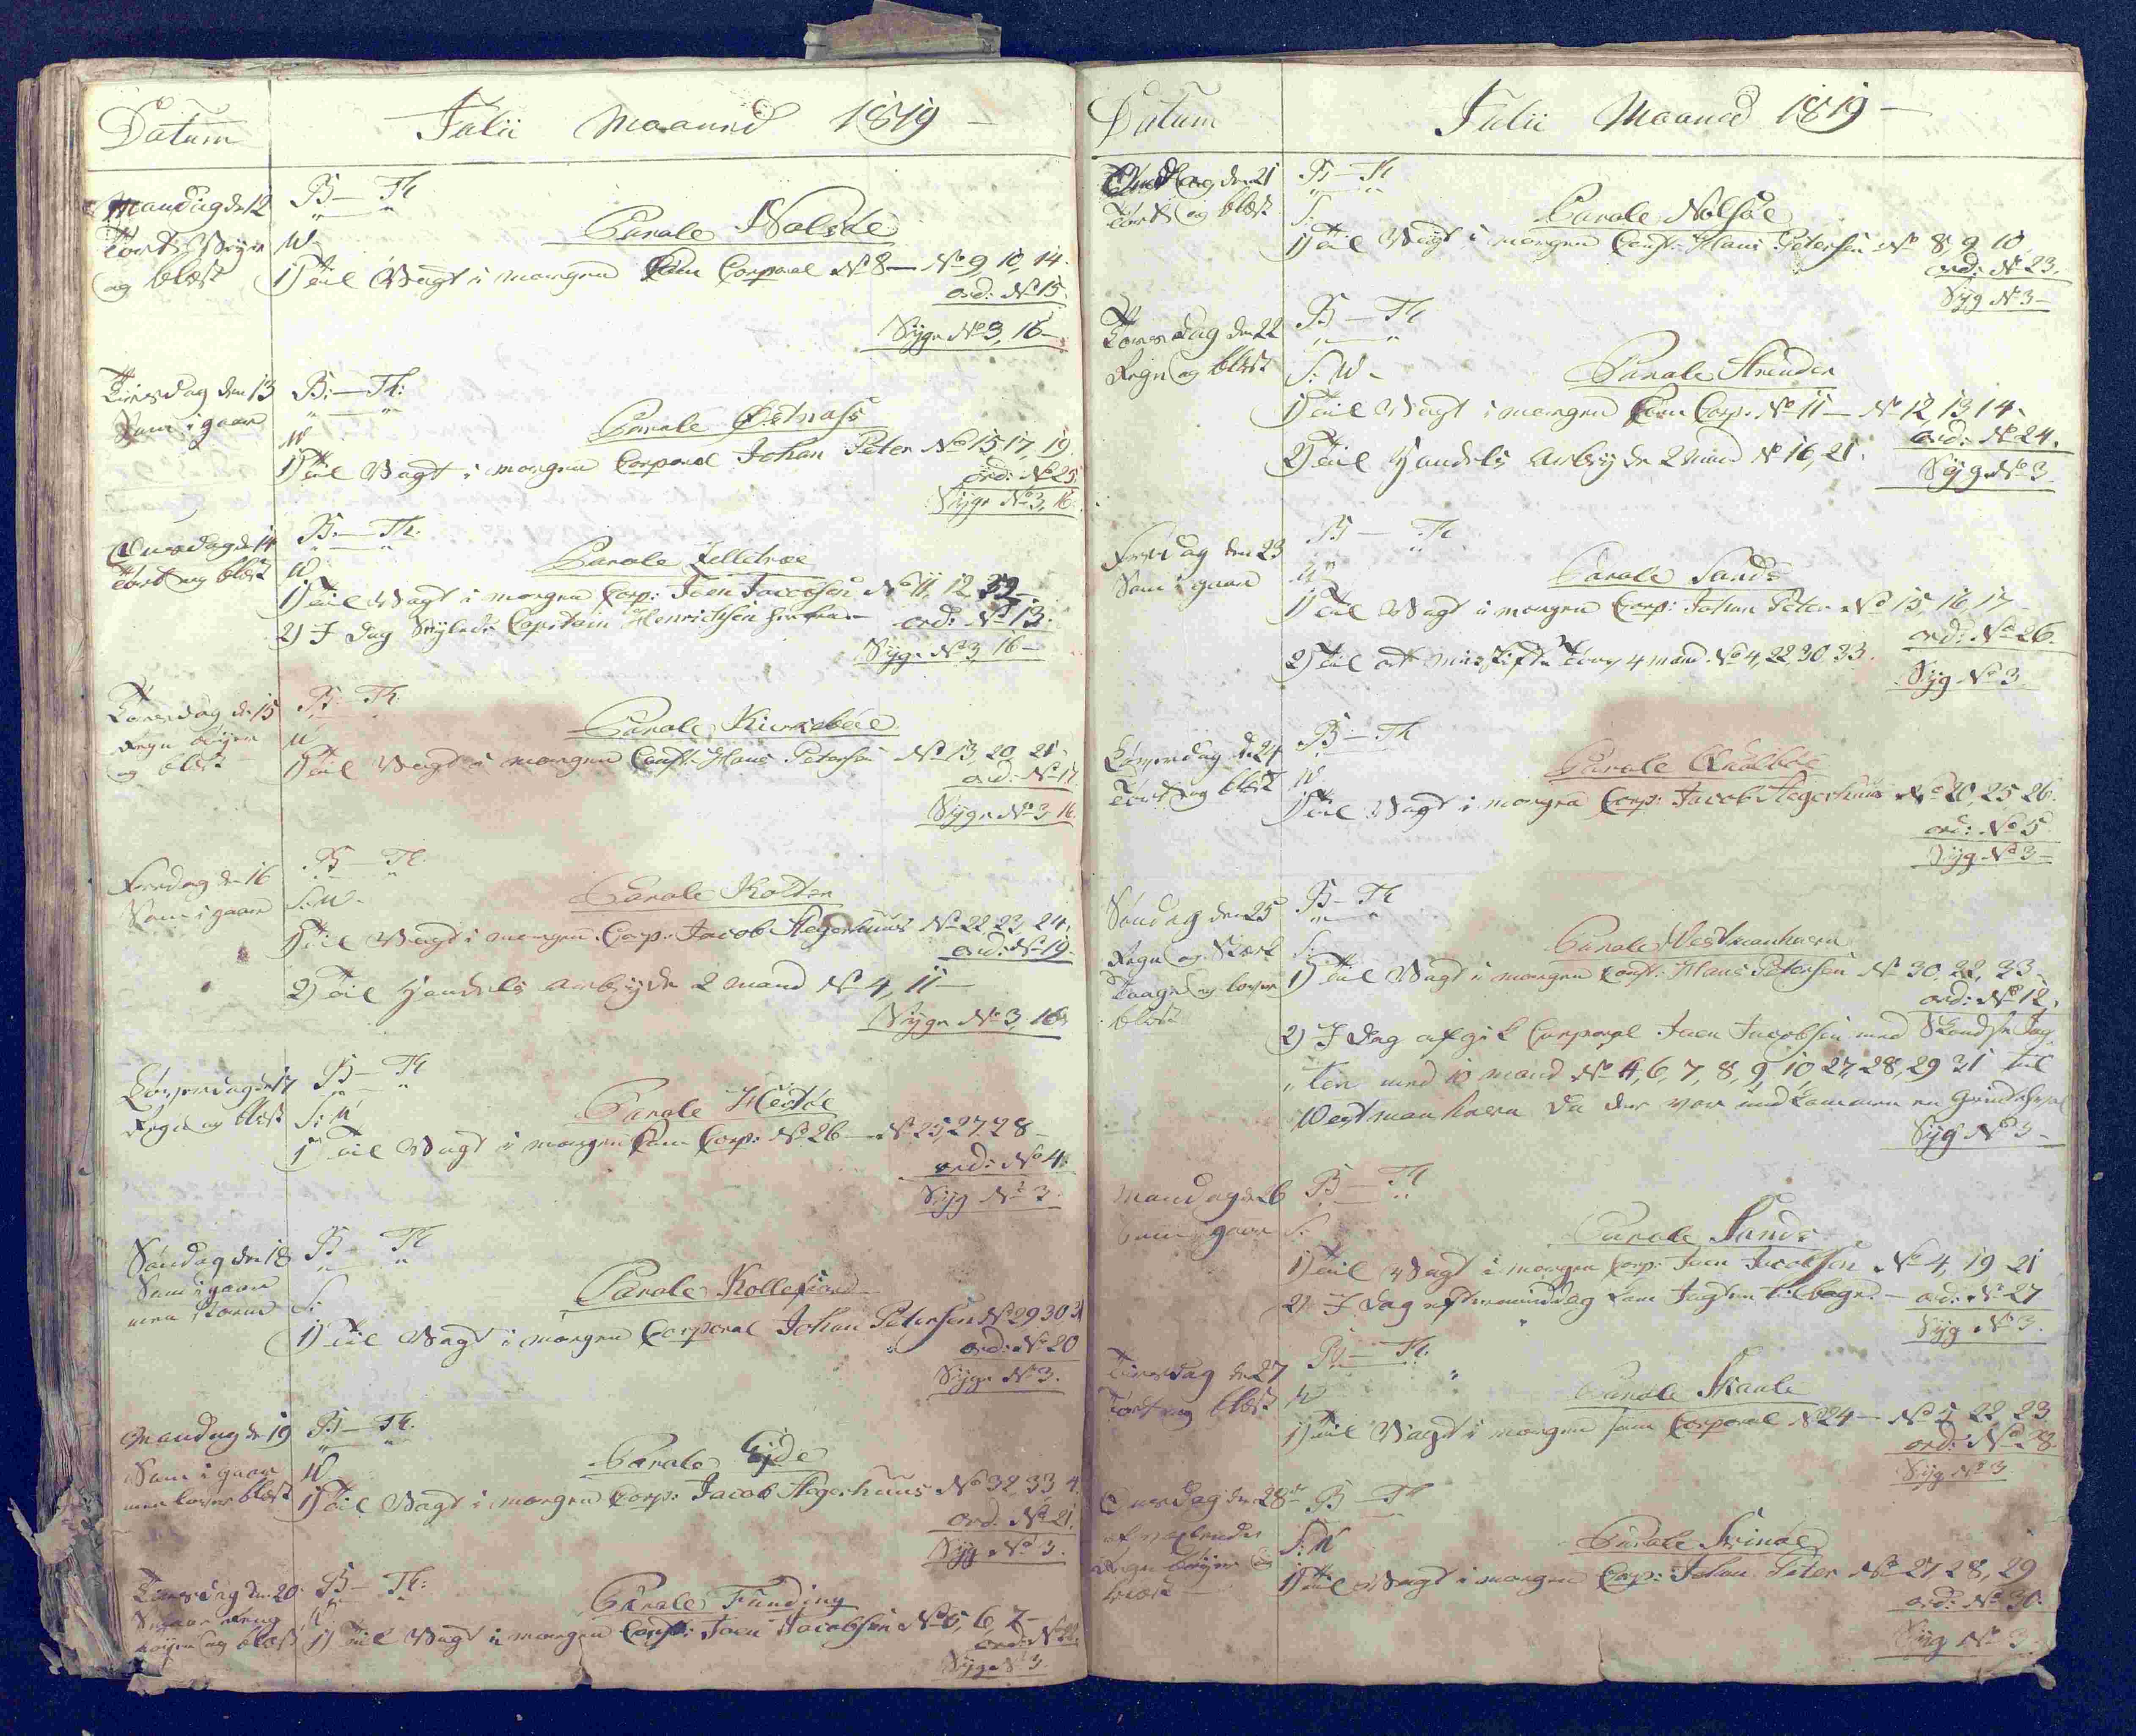 Datum
Julii Maaned 1819 —
Mandag d: 12
Tørt Skyer
og blæst
B — Th
W
Parole Nolsøe
1) Til Vagt i morgen som Corporal No 8 — No 9, 10, 14.
ord: No 15.
Syge No 3, 16 —
Tirsdag den 13
Som i gaar
B: — Th:
W
Parole Østnæss
1) Til Vagt i morgen Corporal Johan Peter No 15 17, 19.
ord: No 25.
Syge No 3, 16.
Onsdag d: 14
Tørt og blæst
B: — Th:
W
Parole Zelletræe
1) Til Vagt i morgen Corp: Joen Jacobsen No 11, 12, 32.
2) I Dag Seylede Capitain Henrichsen herfra — ord: No 13.
Syge No 3, 16 —
Torsdag d: 15
Regn byger
og blæst
B: — Th:
W
Parole Kirkebøe
1) Til Vagt i morgen Const: Hans Petersen No 13, 20, 21.
ord: No 17
Syge No 3, 16.
Fredag den 16
Som i gaar
B — Th:
S: W.
Parole Kolter
1) Til Vagt i morgen Corp: Jacob Stegerhuus No 22, 23, 24.
ord: No 19.
2) Til Handels Arbeyde 2 Mand No 4, 11 —
Syge No 3, 16
Løverdag d: 17
Regn og blæst
B — Th
S: W
Parole Hestøe
1) Til Vagt i morgen som Corp: No 26 — No 25, 27, 28 —
ord: No 4.
Syg No 3.
Søndag den 18
Som i gaar
men storm
B — Th
S:
Parole Kollefiord
1) Til Vagt i morgen Corporal Johan Petersen No 29 30 31
ord: No 20
Syge No 3.
Mandag d: 19
Som i gaar
men blæst
B — Th.
W
Parole Eyde
1) Til Vagt i morgen Corp: Jacob Stegerhuus No 32 33 4.
ord: No 21.
Syg No 3.
Tirsdag den 20
og blæst
B — Th:
W:
Parole Funding
1) Til Vagt i morgen Const: Joen Jacobsen No 5, 6, 7 —
ord: No 22.
Syge No 3
Datum
Julii Maaned 1819 —
Onsdag den 21
Tørt og blæst
B — Th
S:
Parole Nolsøe
1) Til Vagt i morgen Const: Hans Petersen No 8, 9, 10,
ord: No 23.
Syg No 3 —
Torsdag den 22
Regn og blæst
B — Th
S: W —
Parole Strender
1) Til Vagt i morgen som Corp: No 11 — No 12, 13, 14.
ord: No 24.
2) Til Handels Arbeyde 2 Mand No 16, 21.
Syg No 3.
Fredag den 23
Som i gaar
B — Th
W
Parole Sands
1) Til Vagt i morgen Corp: Johan Peter No 15, 16, 17 —
ord: No 26.
2) Til at Tørv, 4 Mand No 4, 22 30 33.
Syg No 3
Løverdag d: 24
Tørt og blæst
B — Th
W
Parole Qualbøe
1) Til Vagt i morgen Corp: Jacob Stegerhuus No 20, 25 26.
ord: No 5
Syg No 3 —
Søndag den 25
Regn og Stærk
Taage og
blæst
B — Th
S:
Parole Westmanhavn
1) Til Vagt i morgen Const: Hans Petersen No 30, 22, 33 —
ord: No 12.
2) I Dag afgik Corporal Joen Jacobsen med Skandse Jag
ten med 10 mand No 4, 6, 7, 8, 9, 10, 27, 28, 29 31 til
Westmanhavn da der var indkommen en Grindehval
Syg No 3 —
Mandag d: 26
Som i gaar
B — Th
S:
Parole Sands
1) Til Vagt i morgen Corp: Joen Jacobsen No 4, 19 21
2) I Dag eftermiddag kom Jagten tilbage. — ord: No 27
Syg No 3.
Tirsdag den 27
Tørt og blæst
B — Th:
W
Parole Skaale
1) Til Vagt i morgen som Corporal No 24 — No 5, 22, 23
ord: No 8.
Syg No 3
Onsdag den 28
Regn byger og
blæst —
B — Th
S: W
Parole Svinøe
1) Til Vagt i morgen Corp: Johan Peter No 27, 28, 29
ord: No 30.
Syg No 3.